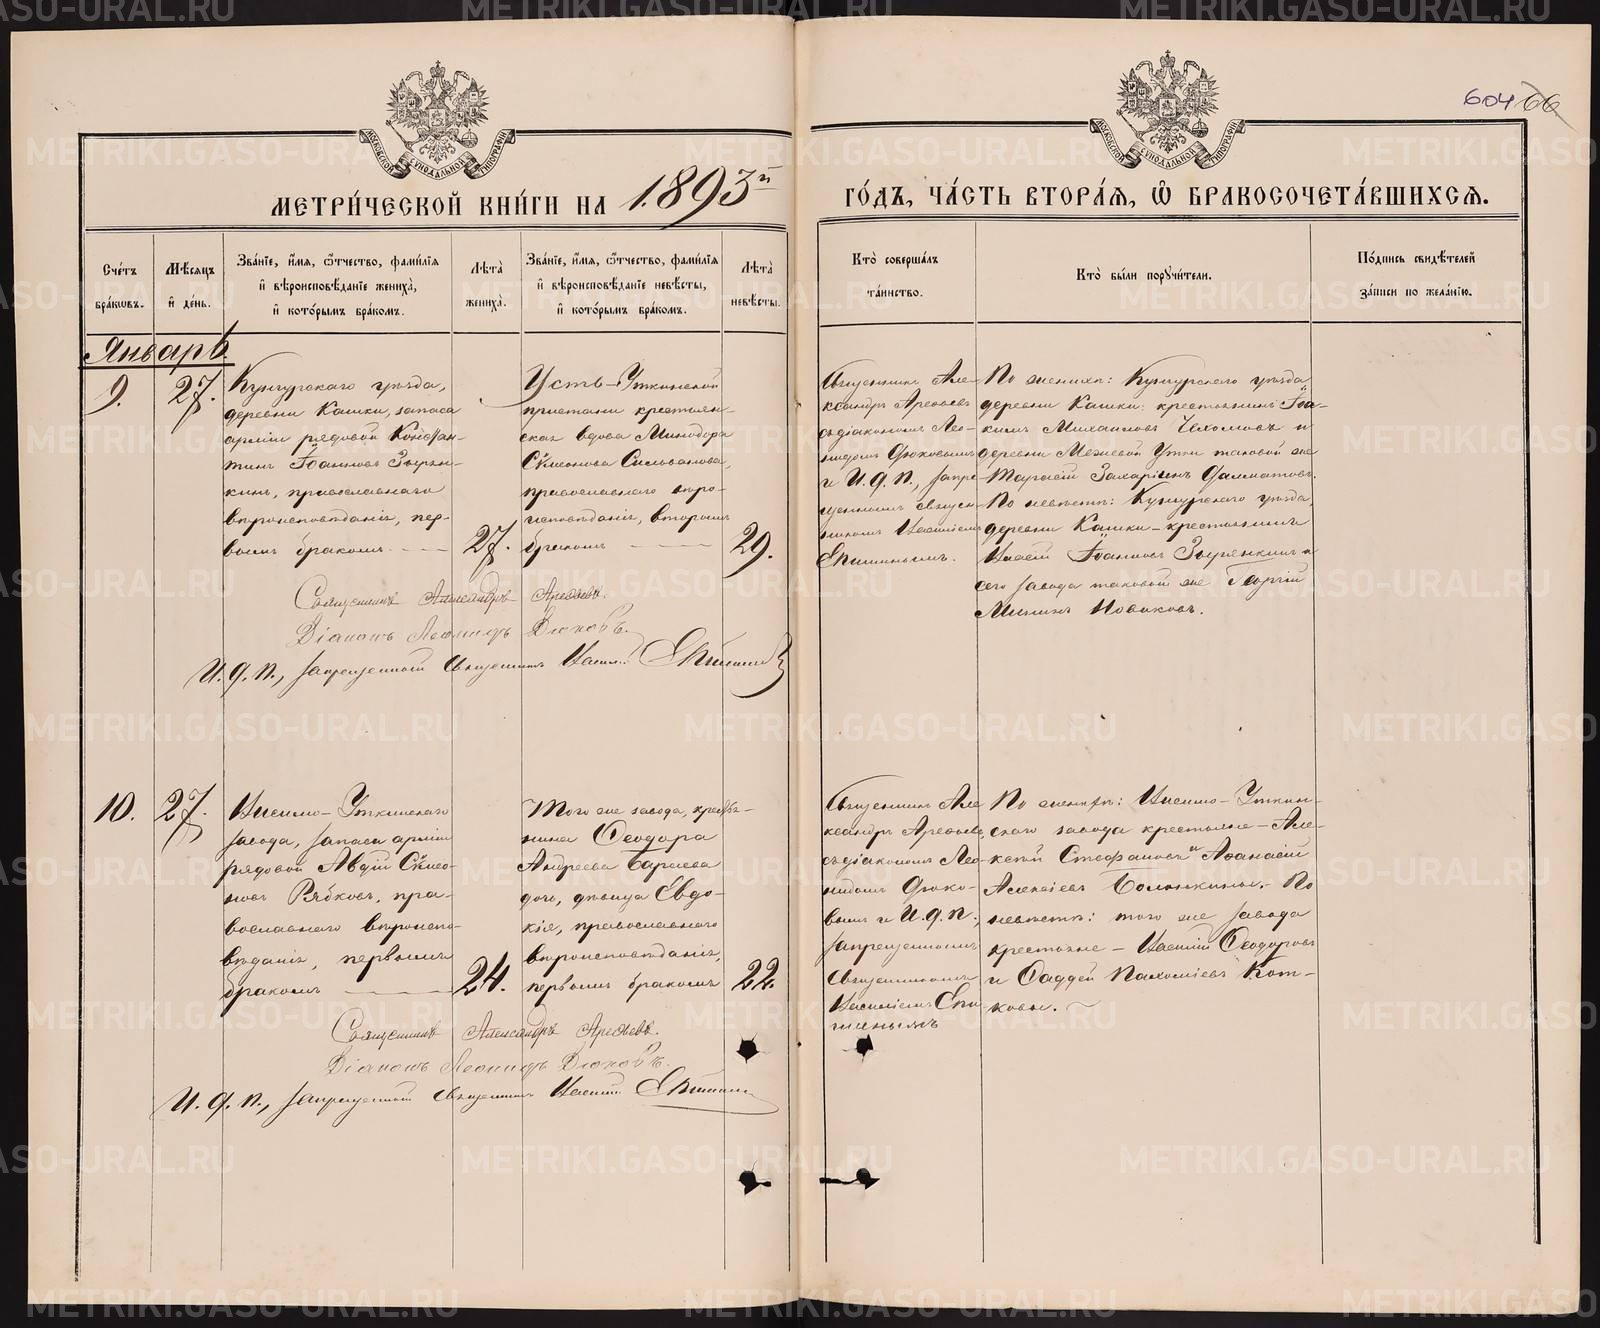 604 66
МОСКОВСКОЙ СѴНОДАЛЬНОЙ ТИПОГРАФІИ
МОСКОВСКОЙ СѴНОДАЛЬНОЙ ТИПОГРАФІИ
МЕТРИ́ЧЕСКОЙ КНИ́ГИ НА 1893й
ГО́ДЪ, ЧА́СТЬ ВТОРА́Я, Ѿ БРАКОСОЧЕТА́ВШИХСЯ.
Сче́тъ
бра́кѡвъ.
Мѣ́сяцъ
и҆ де́нь.
Зва́нїе, и҆́мя, ѻ҆́тчество, фами́лїя
и҆ вѣроисповѣ́данїе жениха̀,
и҆ кото́рымъ бра́комъ.
Лѣ́та̀
жениха̀.
Зва́нїе, и҆́мя, ѻ҆́тчество, фами́лїя
и҆ вѣроисповѣ́данїе невѣ́сты,
и҆ кото́рымъ бра́комъ.
Лѣ́та̀
невѣ́сты.
Кто̀ соверша́лъ
та́инство.
Кто̀ бы́ли поручи́тели.
По́дпись свидѣ́телей
за́писи по жела́нїю.
Январь.
9.
27.
Кунгурскаго уѣзда,
деревни Кашки, запаса
арміи рядовой Констан-
тинъ Іоанновъ Зырян-
кинъ, православнаго
вѣроисповѣданія, пер-
вымъ бракомъ
27.
Усть-Уткинской
пристани крестьян-
ская вдова Минодора
Сѵмеонова Сильванова,
православнаго вѣро-
исповѣданія, вторымъ
бракомъ
29.
Священникъ Але-
ксандръ Арефьевъ
съ діакономъ Лео-
нидомъ Дюковымъ
и И. д. п., запре-
щеннымъ священ-
никомъ Василіемъ
Епишинымъ.
По женихѣ: Кунгурскаго уѣзда
деревни Кашки: крестьянинъ Іоа-
кимъ Михаиловъ и
деревни Межевой Утки таковой же
Захаріинъ
По невѣстѣ: Кунгурскаго уѣзда,
деревни Кашки – крестьянинъ
Іоанновъ Зырянкинъ и
сего завода таковой же Георгій
Мининъ Новиковъ.
Священникъ Александръ Арефьевъ.
Діаконъ Леонидъ Дюковъ.
И. д. п., запрещенный священникъ Василій Епишинъ
10.
27.
Висимо-Уткинскаго
завода, запаса арміи
рядовой Авдій Сѵмео-
новъ Рябковъ, пра-
вославнаго вѣроиспо-
вѣданія, первымъ
бракомъ
24.
Того же завода, крестья-
нина Ѳеодора
Андреева
дочь, дѣвица Евдо-
кія, православнаго
вѣроисповѣданія,
первымъ бракомъ
22.
Священникъ Але-
ксандръ Арефьевъ,
съ діакономъ Лео-
нидомъ Дюко-
вымъ и И. д. п.,
запрещеннымъ
священникомъ
Василіемъ Епи-
шинымъ
По женихѣ: Висимо-Уткин-
скаго завода крестьяне – Але-
ксѣй Стефановъ и Аѳанасій
Алексіевъ Болонкины. – По
невѣстѣ: того же завода
крестьяне – Василій Ѳеодоровъ
и Ѳаддей Пахоміевъ Кот-
ковы.
Священникъ Александръ Арефьевъ.
Діаконъ Леонидъ Дюковъ.
И. д. п., запрещенный священникъ Василій Епишинъ
METRIKI.GASO-URAL.RU